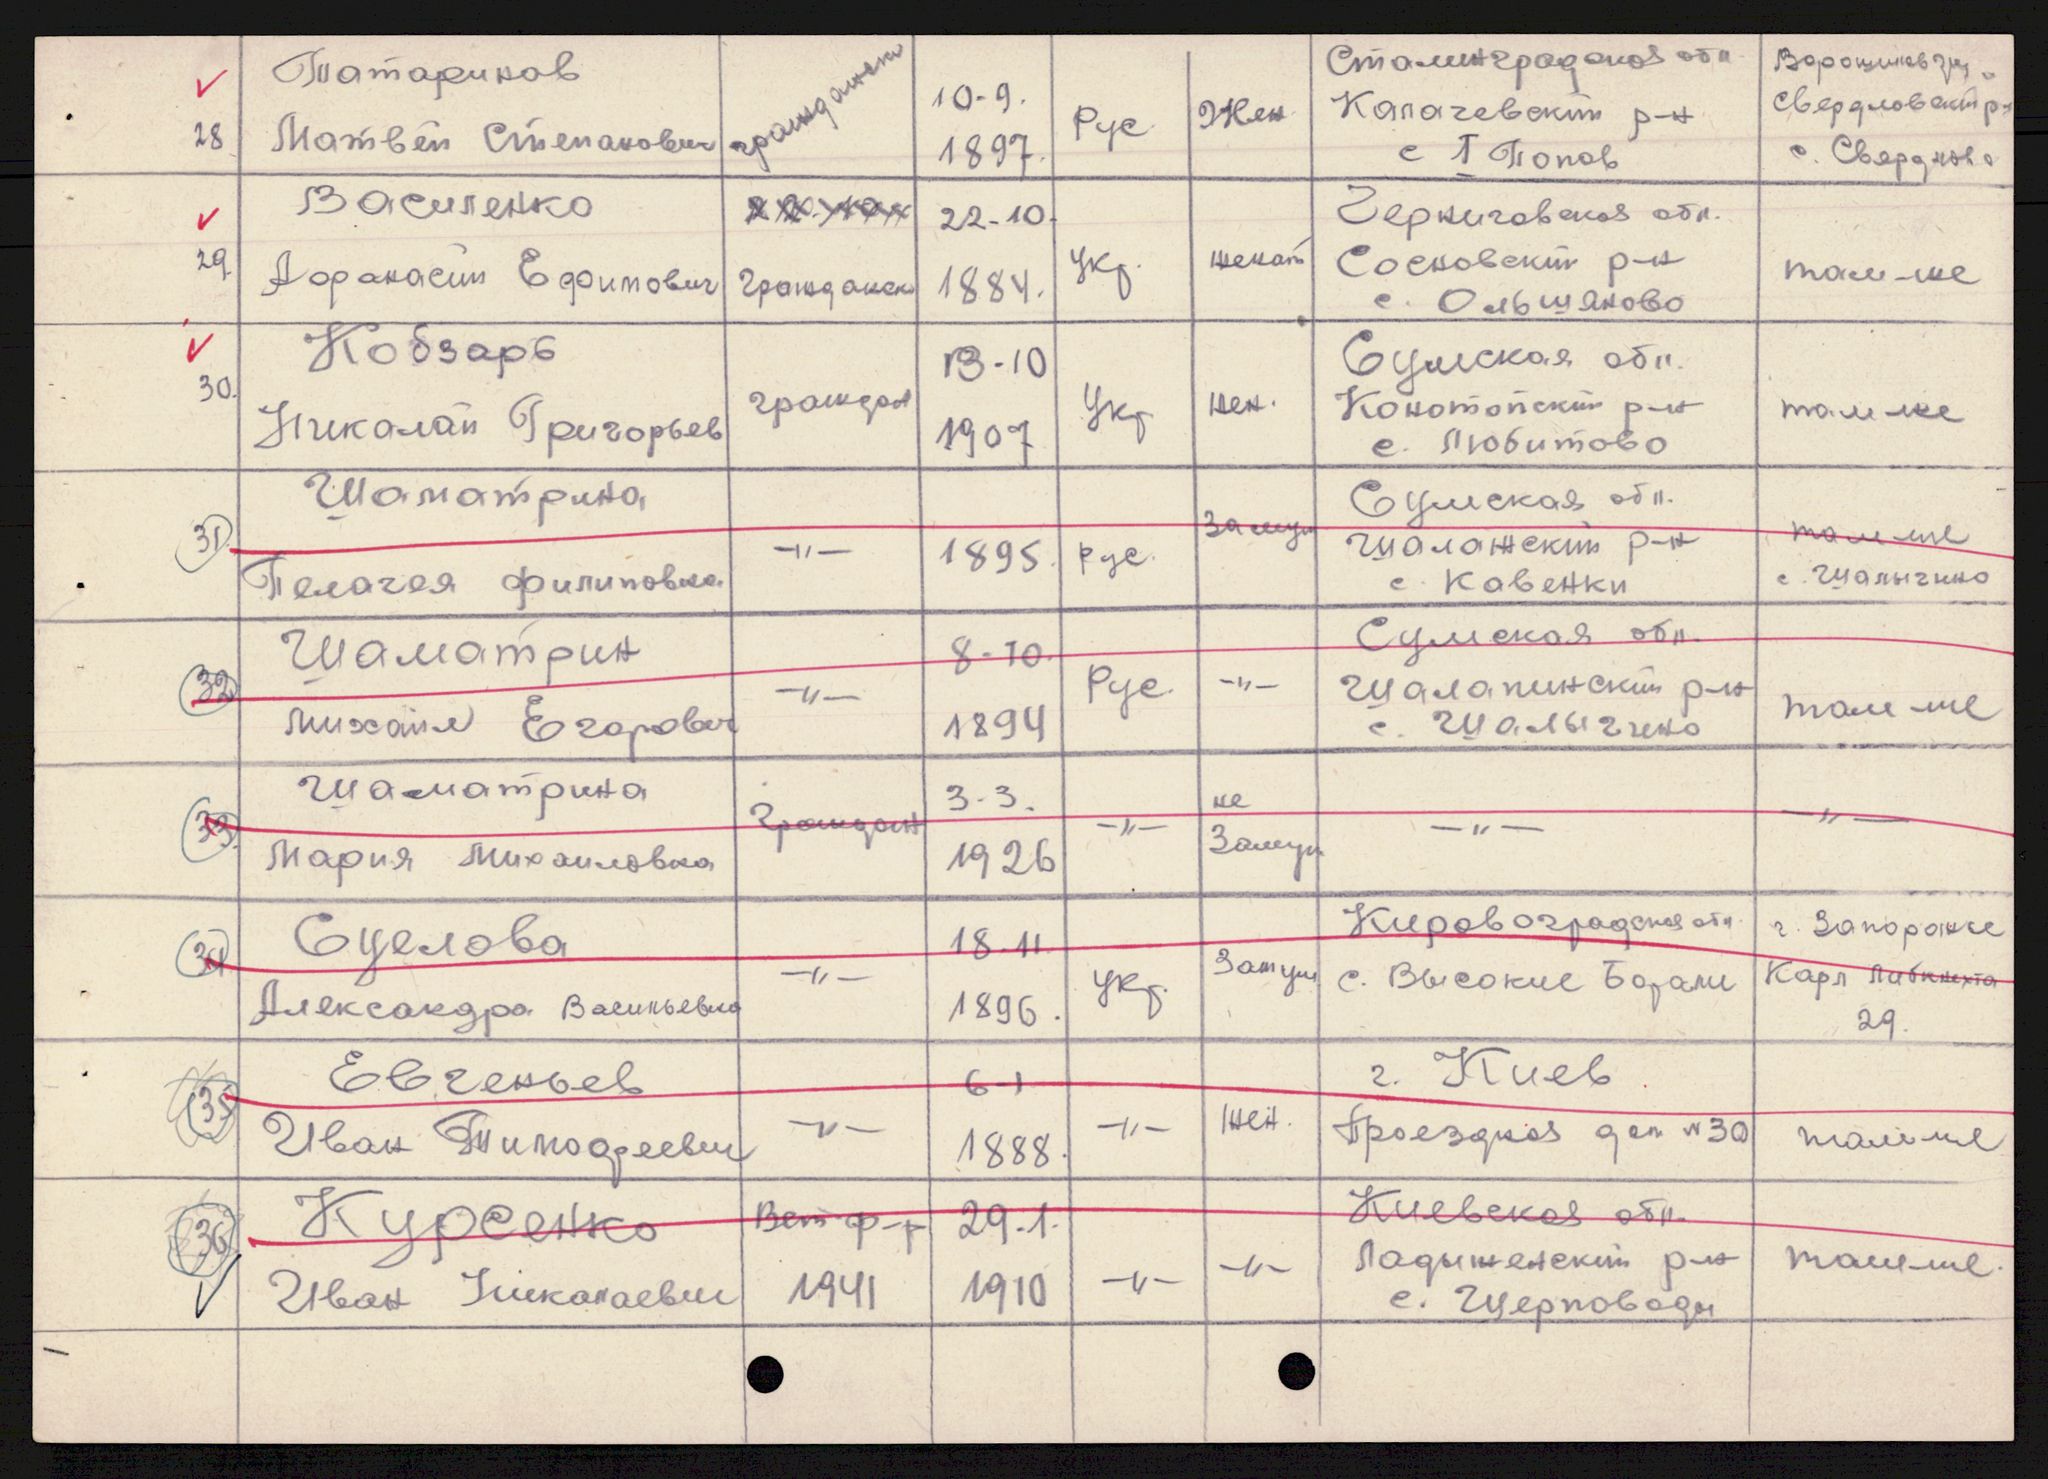 28 Татаринов Матвей Степанович граждански 10-9. 1897. Рус. Жен. Сталинградская обл. Калачевский р-н с Т Попов Свердловский р-н с. Свердлово
29. Василенко Афанасий Ефимович Граждански 22-10. 1884. Укр. женат Черниговская обл. Сосновский р-н с. Ольшаново там-же
30. Кобзарь Николай Григорьев граждан 13-10 1907 Укр. жен. Сумская обл. Конотопский р-н с. Любитово там же
31. Шаматрина Пелагея Филиповна —〃— 1895. рус. Замуж Сумская обл. Шалажский р-н с. Кавенки там же с. Шалыгино
32 Шаматрин Михаил Егорович —〃— 8-10. 1894 Рус. —〃— Сумская обл. Шалапинский р-н с. Шалыгино там же
33. Шаматрина Мария Михаиловна Граждан 3-3. 1926 —〃— не Замуж —〃— —〃—
34 Суслова Александра Васильевна —〃— 18-11 1896. Укр. Замуж Кировоградская обл. с. Высокие г. Запорожье Карл Либкнехта 29.
35 Евгеньев Иван Тимофеевич —〃— 6-1 1888. —〃— жен. г. Киев Проездная дом №30 там же
36 Курсенко Иван Николаевич 1941 29.1. 1910 —〃— —〃— Киевская обл. Ладыженский р-н с. там же.